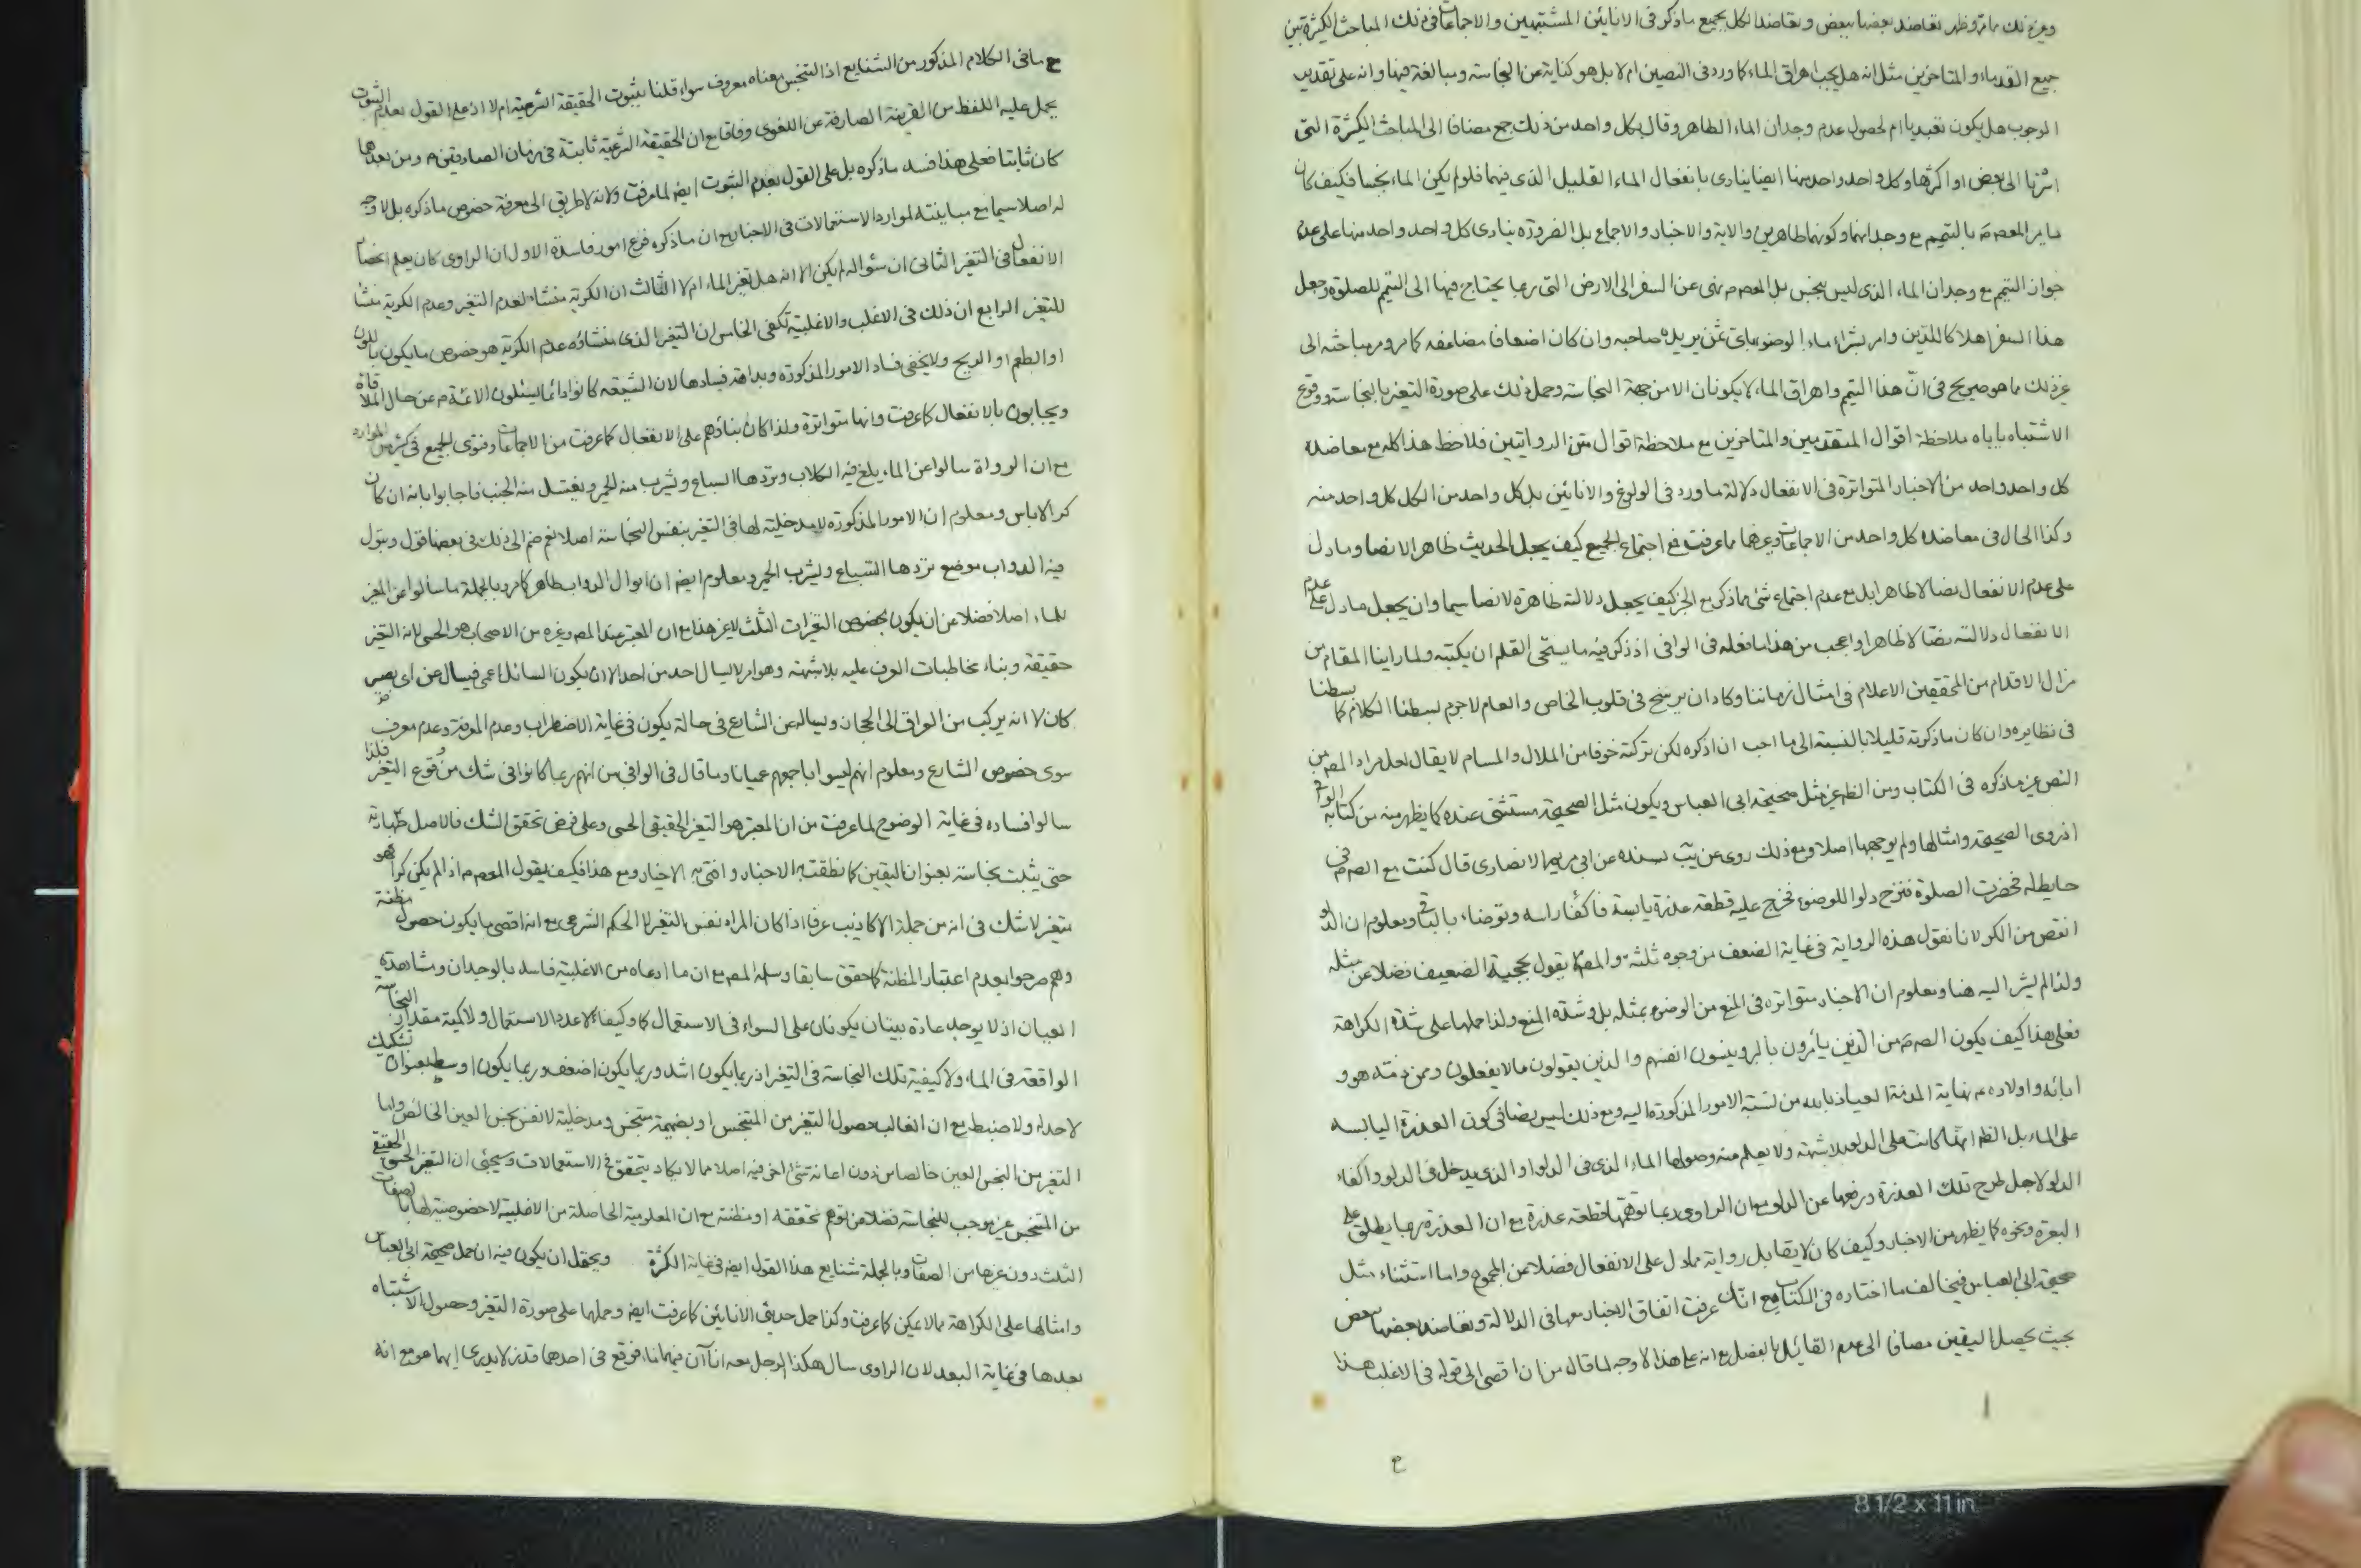 وغير ذلك مما مر وظهر تعاضد بعضها ببعض وتعاضد الكل بجميع ما ذكر فى الانائين المشتبهين والاجماعات فى ذلك المباحث الكثيرة بين
جميع القدماء والمتاخرين مثل انه هل يجب اهراق الماء كما ورد فى النصين ام لا بل هو كناية عن النجاسة ومبالغة فيها وانه على تقدير
الوجوب هل يكون تعبديا ام لحصول عدم وجدان الماء الطاهر وقال بكل واحد من ذلك جمع مضافا الى المباحث الكثيرة التى
اشرنا الى بعض او اكثرها وكل واحد واحد منها ايضا ينادى بانفعال الماء القليل الذى فيهما فلو لم يكن الماء نجسا فكيف كان
يامر المعصوم بالتيمم مع وجدانهما وكونهما طاهرين والاية والاخبار والاجماع بل الضرورة ينادى كل واحد واحد منها على عدم
جواز التيمم مع وجدان الماء الذى ليس بنجس بل المعصوم نهى عن السفر الى الارض التى ربما يحتاج فيها الى التيمم للصلوة وجعل
هذا السفر اهلاكا للدين وامر بشراء ماء الوضوء باى ثمن يريده صاحبه وان كان اضعافا مضاعفه كما مر ومر مباحثه الى
غير ذلك مما هو صريح فى ان هذا التيمم واهراق الماء لا يكونان الا من جهة النجاسة وحمل ذلك على صورة التغير بالنجاسة ووقوع
الاشتباه يأباه ملاحظة اقوال المتقدمين والمتاخرين مع ملاحظة اقوال متن الروايتين فلاحظ هذا كله مع معاضدة
كل واحد واحد من الاخبار المتواترة فى الانفعال دلالة ما ورد فى الولوغ والانائين بل كل واحد من الكل كل واحد منه
وكذا الحال فى معاضدة كل واحد من الاجماعات وغيرهما مما عرفت فمع اجتماع الجميع كيف يجعل الحديث ظاهرا لا نصا وما دل
على عدم الانفعال نصا لا ظاهرا بل مع عدم اجتماع شئ مما ذكر مع الخبر كيف يجعل دلالته ظاهرة لا نصا سيما وان يجعل ما دل على عدم
الانفعال دلالته نصا لا ظاهرا واعجب من هذا ما فعله فى الوافى اذ ذكر فيه ما يستحى القلم ان يكتبه ولما راينا المقام من
مزال الاقدام من المحققين الاعلام فى امثال زماننا وكاد ان يرسخ فى قلوب الخاص والعام لا جرم بسطنا الكلام كما بسطنا
فى نظايره وان كان ما ذكرته قليلا بالنسبة الى ما احب ان اذكره لكن تركته خوفا من الملال والمسام لا يقال لعل مراد المصنف من
النص غير ما ذكره فى الكتاب ومن الظاهر غير مثل صحيحة ابى العباس ويكون مثل الصحيحة مستثنى عنده كما يظهر منه من كتابه الوافى
اذ روى الصحيحة وامثالها ولم يوجهها اصلا ومع ذلك روى عن يب بسنده عن ابى مريم الانصارى قال كنت مع الصم فى
حايط له فحضرت الصلوة فنزح دلوا للوضوء فخرج عليه قطعة عذرة يابسة فأكفأ راسه وتوضاء بالباقى ومعلوم ان الدلو
انقص من الكر لانا نقول هذه الرواية فى غاية الضعف من وجوه ثلثة والمصنف لا يقول بحجية الضعيف فضلا عن مثله
ولذا لم يشر اليه هنا ومعلوم ان الاخبار متواترة فى المنع من الوضوء بمثله بل وشدة المنع ولذا حملها على شدة الكراهة
فعلى هذا كيف يكون الصم من الذين يأمرون بالبر وينسون انفسهم والذين يقولون ما لا يفعلون وممن ذمته هو و
ابائه واولاده م نهاية المذمة العياذ بالله من نسبة الامور المذكورة اليه ومع ذلك ليس نصا فى كون العذرة اليابسة
على الماء بل الظاهر انها كانت على الدلو بلا شبهة ولا يعلم منه وصولها الماء الذى فى الدلو او الذى يدخل فى الدلو واكفاء
الدلو لاجل طرح تلك العذرة ورفعها عن الدلو مع ان الراوى ربما توهمها قطعة عذرة مع ان العذرة ربما يطلق على
البعرة ونحوه كما يظهر من الاخبار وكيف كان لا يقابل رواية مما دل على الانفعال فضلا من المجموع واما استثناء مثل
صحيحة ابى العباس فيخالف ما اختاره فى الكتاب مع انك عرفت اتفاق الاخبار معها فى الدلالة وتعاضد بعضها ببعض
بحيث يحصل اليقين مضافا الى عدم القائل بالفصل مع انه على هذا لا وجه لما قال من ان اقصى الى قوله فى الاغلب هذا
مع ما فى الكلام المذكور من الشنايع اذ التنجس معناه معروف سواء قلنا بثبوت الحقيقة الشرعية ام لا اذ على القول بعدم الثبوت
يحمل عليه اللفظ من القرينة الصارفة عن اللغوى وفاقا مع ان الحقيقة الشرعية ثابتة فى زمان الصادقين م ومن بعدهما
كان ثابتا فعلى هذا فسد ما ذكره بل على القول بعدم الثبوت ايضا لما عرفت ولانه لا طريق الى معرفة خصوص ما ذكره بل لا وجه
له اصلا سيما مع مباينته لموارد الاستعمالات فى الاخبار مع ان ما ذكره فرع امور فاسدة الاول ان الراوى كان يعلم انحصار
الانفعال فى التغير الثانى ان سؤاله لم يكن الا انه هل تغير الماء ام لا الثالث ان الكرية منشاء لعدم التغير وعدم الكرية منشأ
للتغير الرابع ان ذلك فى الاغلب والاغلبية تكفى الخامس ان التغير الذى منشاؤه عدم الكرية هو خصوص ما يكون باللون
او الطعم او الريح ولا يخفى فساد الامور المذكورة وبداهة فسادها لان الشيعة كانوا دائما يسئلون الائمة م عن حال الملاقاة
ويجابون بالانفعال كما عرفت وانها متواترة ولذا كان بناؤهم على الانفعال كما عرفت من الاجماعات وفتوى الجميع فى كثير من الموارد
مع ان الرواة سالوا عن الماء يلغ فيه الكلاب وتردها السباع ويشرب منه الحمر ويغتسل منه الجنب فاجابوا بانه ان كان
كرا لا باس ومعلوم ان الامور المذكورة لا مدخلية لها فى التغير بنفس النجاسة اصلا نعم ضم الى ذلك فى بعضها قول وتبول
فيه الدواب موضع تردها السباع ويشرب الحمر ومعلوم ايضا ان ابوال الدواب طاهر كما مر وبالجملة ما سألوا عن المغير
للماء اصلا فضلا عن ان يكون بخصوص التغيرات الثلث لا غير هذا مع ان المعتبر عند المصنف وغيره من الاصحاب هو الحسى لانه التغير
حقيقة وبناء مخاطبات العرف عليه بلا شبهة وهو امر لا يسال احد من احد الا ان يكون السائل اعمى فيسال عن اى بصير
كان لا انه يركب من العراق الى الحجاز ويساله عن الشارع فى حالة يكون فى غاية الاضطراب وعدم المعرفة وعدم معرف
سوى خصوص الشارع ومعلوم انهم ليسوا باجمعهم عميانا وما قال فى الوافى من انهم ربما كانوا فى شك من وقوع التغير فلذا
سالوا فساده فى غاية الوضوح لما عرفت من ان المعتبر هو التغير الحقيقى الحسى وعلى فرض تحقق الشك فالاصل طهارته
حتى يثبت نجاسته بعنوان اليقين كما نطقت به الاخبار وافتى به الاخيار ومع هذا فكيف يقول المعصوم اذا لم يكن كرا فهو
متغير لا شك فى انه من جملة الاكاذيب عرفا اذا كان المراد نفس التغير لا الحكم الشرعى مع انه اقصى ما يكون حصول مظنة
وهم صرحوا بعدم اعتبار المظنة كما حقق سابقا وسلمه المصنف مع ان ما ادعاه من الاغلبية فاسد بالوجدان ومشاهدة
العيان اذ لا يوجد عادة بيتان يكونان على السواء فى الاستعمال كما وكيفا لا عدد الاستعمال ولا كمية مقدار النجاسة
الواقعة فى الماء ولا كيفية تلك النجاسة فى التغير اذ ربما يكون اشد وربما يكون اضعف وربما يكون اوسط بعنوان تشكيك
لا حد له ولا ضبط مع ان الغالب حصول التغير من المتنجس او بضميمة متنجس ومدخليته لا نفس نجس العين الخالص واما
التغير من النجس العين خالصا من دون اعانة شئ اخر فيه اصلا مما لا يكاد يتحقق فى الاستعمالات وسيجئ ان التغير الحسى الحقيقى
من المتنجس غير موجب للنجاسة فضلا عن توهم تحققه او مظنته مع ان المعلومية الحاصلة من الاغلبية لا خصوصية لها بالصفات
الثلث دون غيرها من الصفات وبالجملة شنايع هذا القول ايضا فى غاية الكثرة ويحتمل ان يكون فيه ان حمل صحيحة ابى العباس
وامثالها على الكراهة مما لا يمكن كما عرفت وكذا حمل حديثى الانائين كما عرفت ايضا وحملها على صورة التغير وحصول الاشتباه
بعدها فى غاية البعد لان الراوى سال هكذا الرجل معه اناآن فيهما ماء فوقع فى احدهما قذر لا يدرى ايهما هو مع انه
8 1/2 x 11 in.